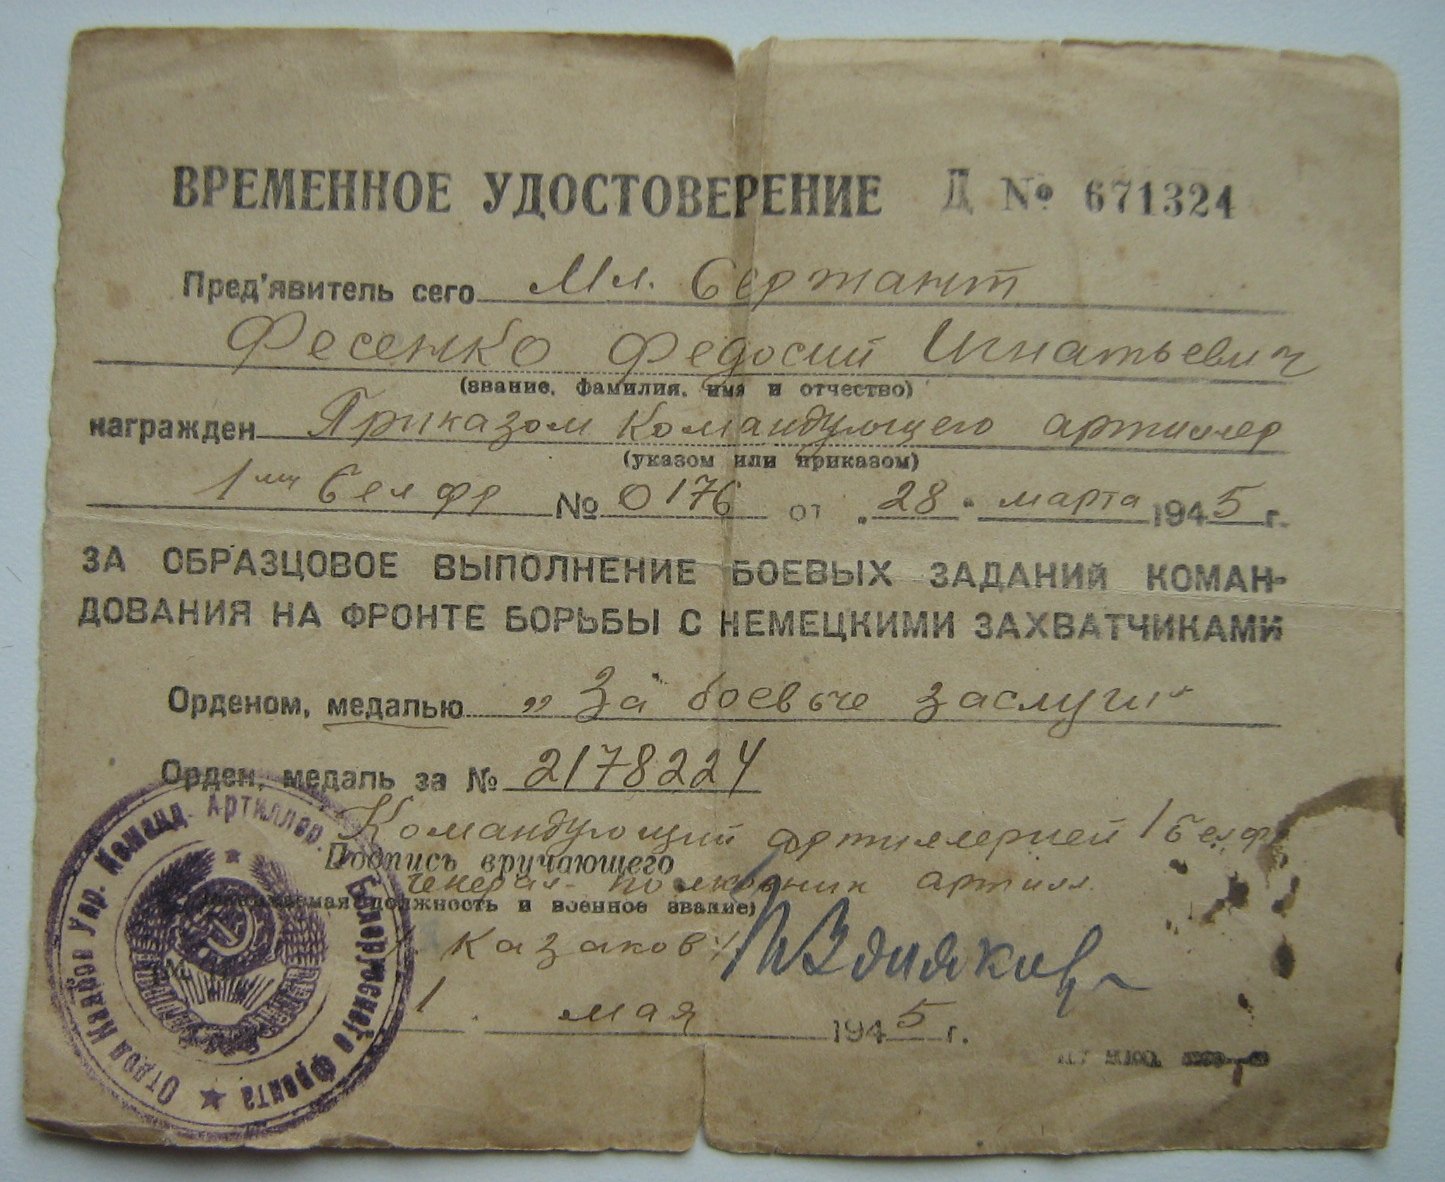 ВРЕМЕННОЕ УДОСТОВЕРЕНИЕ Д № 671324
Пред'явитель сего Мл. Сержант
Фесенко Федосий Игнатьевич
(звание, фамилия, имя и отчество)
награжден Приказом Командующего артиллер
(указом или приказом)
1 Бел фр № 0176 от "28" марта 1945 г.
ЗА ОБРАЗЦОВОЕ ВЫПОЛНЕНИЕ БОЕВЫХ ЗАДАНИЙ КОМАН-
ДОВАНИЯ НА ФРОНТЕ БОРЬБЫ С НЕМЕЦКИМИ ЗАХВАТЧИКАМИ
Орденом, медалью „За боевые заслуги"
Орден, медаль за № 2178224
Командующий артиллерией 1 Бел фр
Подпись вручающего
генерал-полковник артилл.
должность и военное звание)
Казаков
1 мая 1945 г.
Отдел Кадров Упр. Команд. Артиллер. Белорусского Фронта